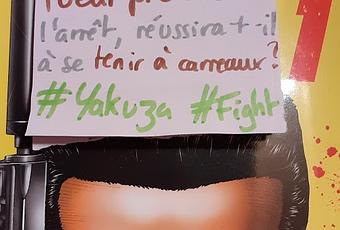 l'arrêt, réussira-t-il
à se tenir à carreaux?
#Yakuza #Fight
1